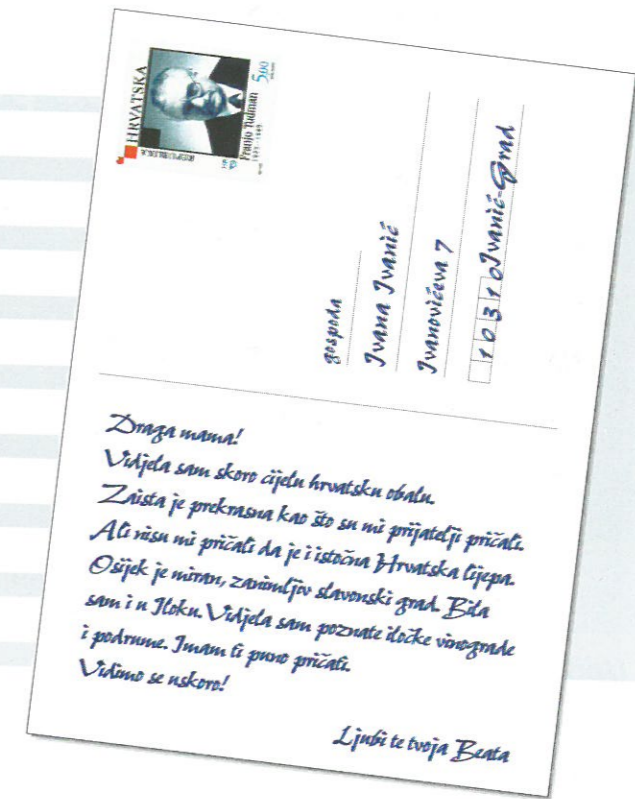 HRVATSKA
REPUBLIKA
Franjo Tuđman
5,00
gospođa
Ivana Ivanić
Ivanovićeva 7
10310 Ivanić-Grad
Draga mama!
Vidjela sam skoro cijelu hrvatsku obalu.
Zaista je prekrasna kao što su mi prijatelji pričali.
Ali nisu mi pričali da je i istočna Hrvatska lijepa.
Osijek je miran, zanimljiv slavonski grad. Bila
sam i u Iloku. Vidjela sam poznate iločke vinograde
i podrume. Imam ti puno pričati.
Vidimo se uskoro!
Ljubi te tvoja Beata